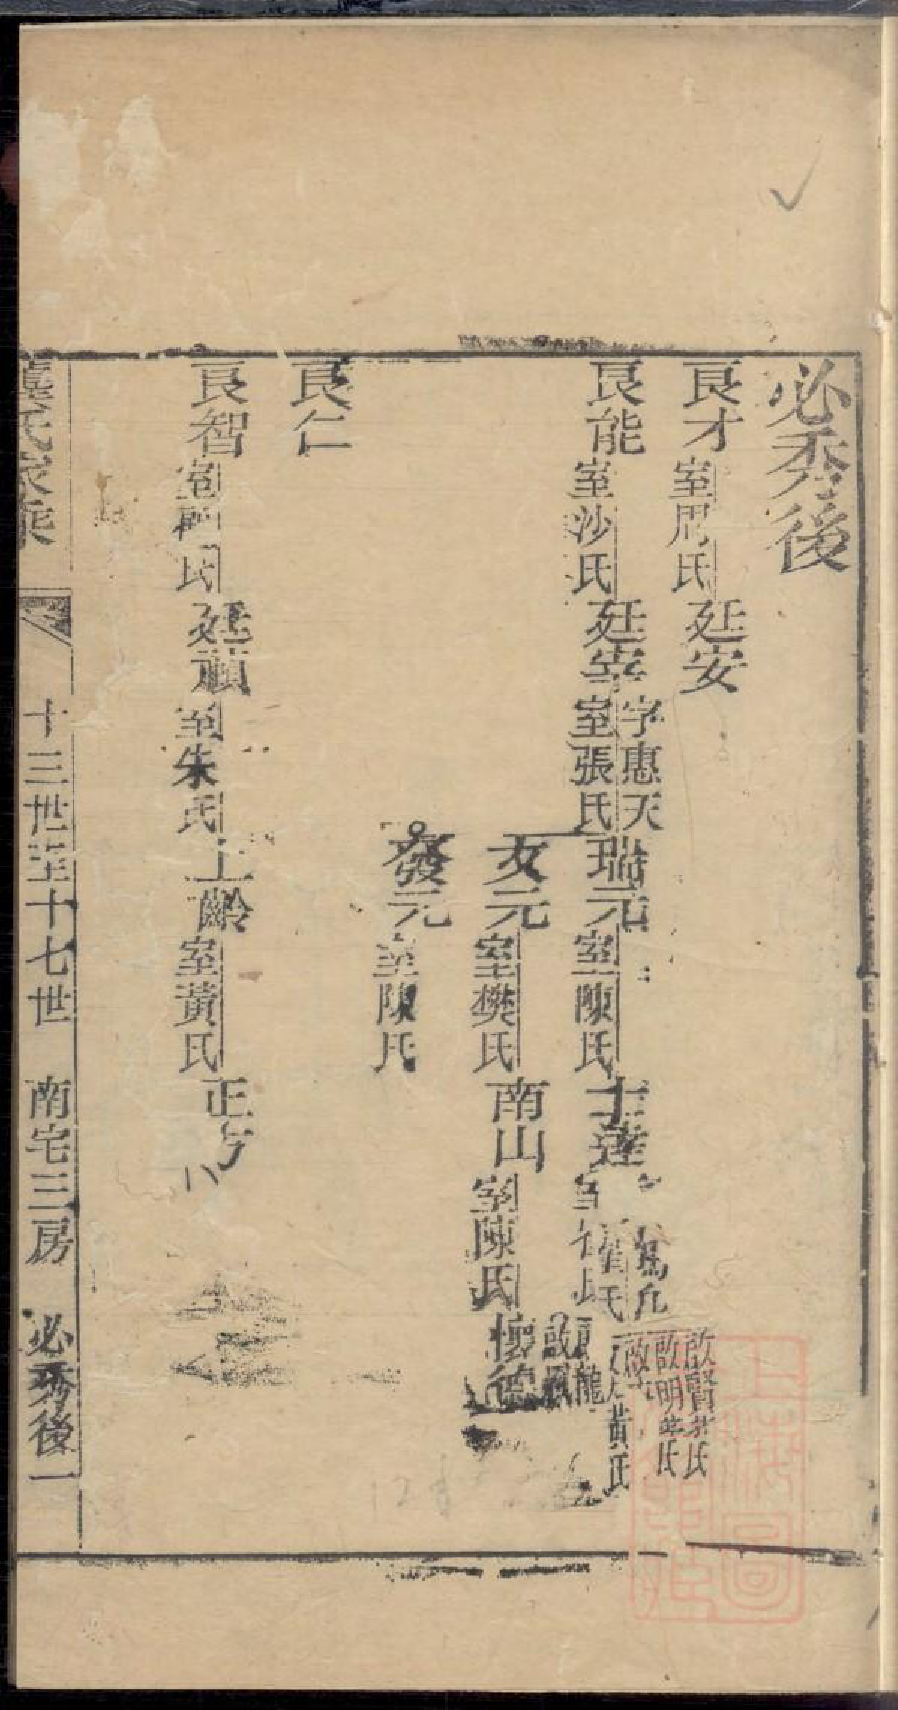 必秀後
良才 室周氏 廷安
良能 室沙氏 廷宰 字惠天 室張氏 瑞元 室陳氏 士達 室 氏 羅氏
啟賢 氏
啟明 氏
啟 黃氏
龍
啟鳳
文元 室樊氏 南山 室陳氏 懷德
發元 室陳氏
良仁
良智 室 氏 廷禎 室朱氏 上齡 室黃氏 正方
龔氏家乘 十三世至十七世 南宅三房 必秀後一
上海圖